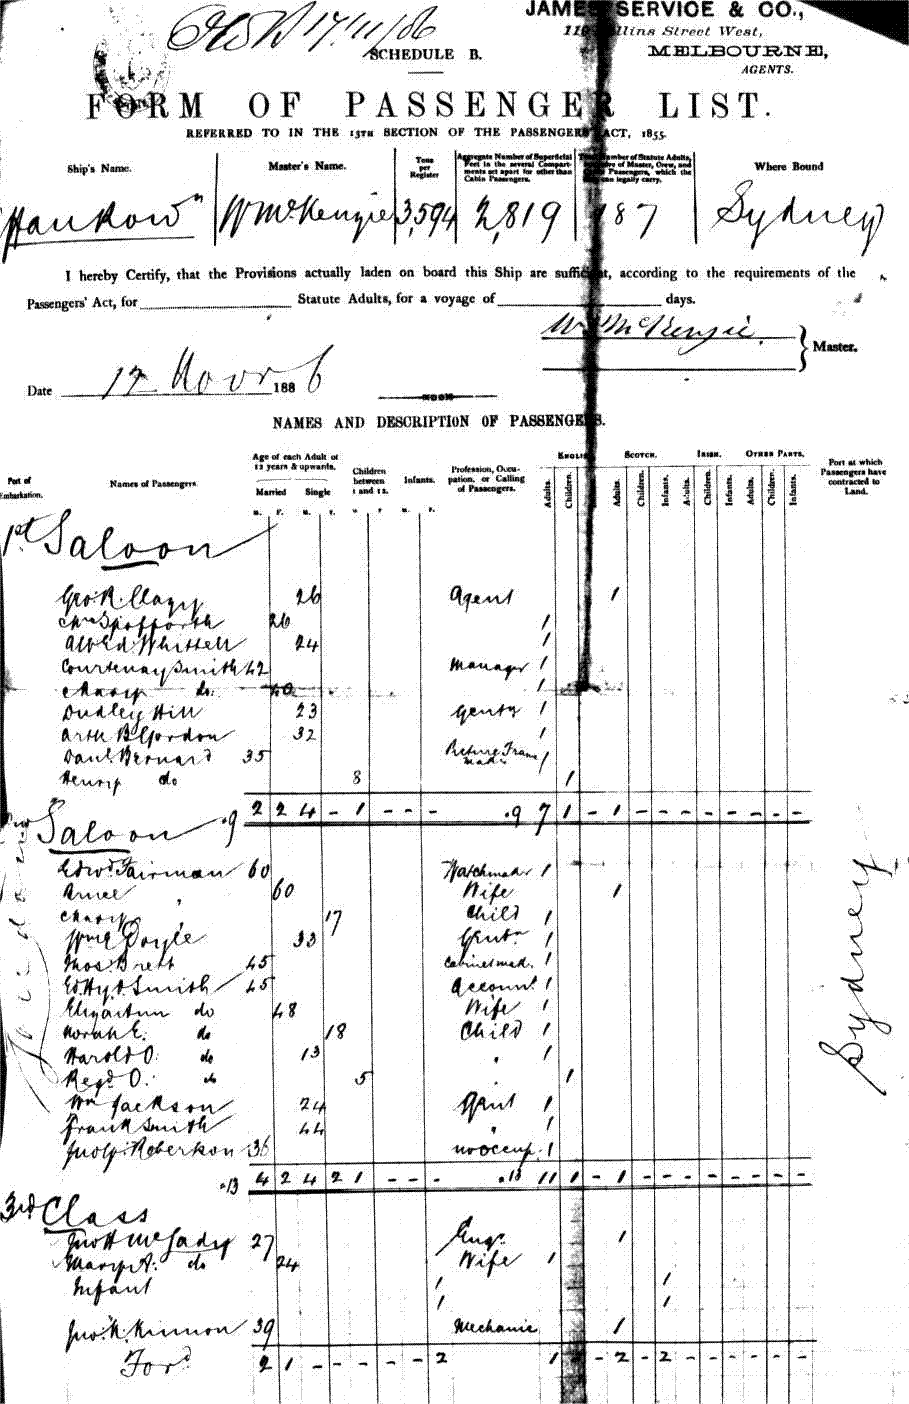 17/11/86
JAMES SERVICE & CO.,
Collins Street West,
MELBOURNE,
AGENTS.
SCHEDULE B.
FORM OF PASSENGER LIST.
REFERRED TO IN THE 15TH SECTION OF THE PASSENGERS ACT, 1855.
Ship's Name. Master's Name. Tons per Register Aggregate Number of Superficial Feet in the several Compartments set apart for other than Cabin Passengers. Number of Statute Adults, of Master, Crew, and Passengers, which the can legally carry. Where Bound
"Hankow" W McKenzie 3,594 2,819 187 Sydney
I hereby Certify, that the Provisions actually laden on board this Ship are sufficient, according to the requirements of the
Passengers' Act, for Statute Adults, for a voyage of days.
W McKenzie. Master.
Date 17 Novr 1886
NAMES AND DESCRIPTION OF PASSENGERS.
Port of Embarkation. Names of Passengers. Age of each Adult of 12 years & upwards. Married Single Children between 1 and 12. Infants. Profession, Occupation, or Calling of Passengers. ENGLISH SCOTCH. IRISH. OTHER PARTS. Port at which Passengers have contracted to Land.
M. F. M. F. M F M. F. Adults. Children. Adults. Children. Infants. Adults. Children. Infants. Adults. Children. Infants.
1st Saloon
Geo. R. 26 Agent 1
Spofforth 26 1
Whittell 24 1
Courtenay Smith 42 Manager 1
do. 40 1
Dudley Hill 23 Gentn 1
Arth B Gordon 32 1
Danl Bernard 35 Picture Frame 1
Henry do 8 1
9 2 2 4 - 1 - - - 9 7 1 - 1 - - - - - - - -
Saloon
Edwd Fairman 60 Watchmaker 1
60 Wife 1
17 Child 1
Wm Doyle 33 Gentn 1
Thos Brett 45 Cabinetmak. 1
Smith 45 Account 1
do 48 Wife 1
Norah E. do 18 Child 1
Harold O. do 13 " 1
Regd O. do 5 " 1
Wm Jackson 24 1
Frank Smith 44 " 1
Roberkson 36 no occup. 1
13 4 2 4 2 1 - - - 13 11 1 - 1 - - - - - - - -
Sydney
3rd Class
Jno H 27 Engr. 1
Mary A. do 24 Wife 1
Infant 1 1
1 1
Jno. K. Kinnon 39 Mechanic 1
Ford 2 1 - - - - - 2 1 - - 2 - 2 - - - - - -